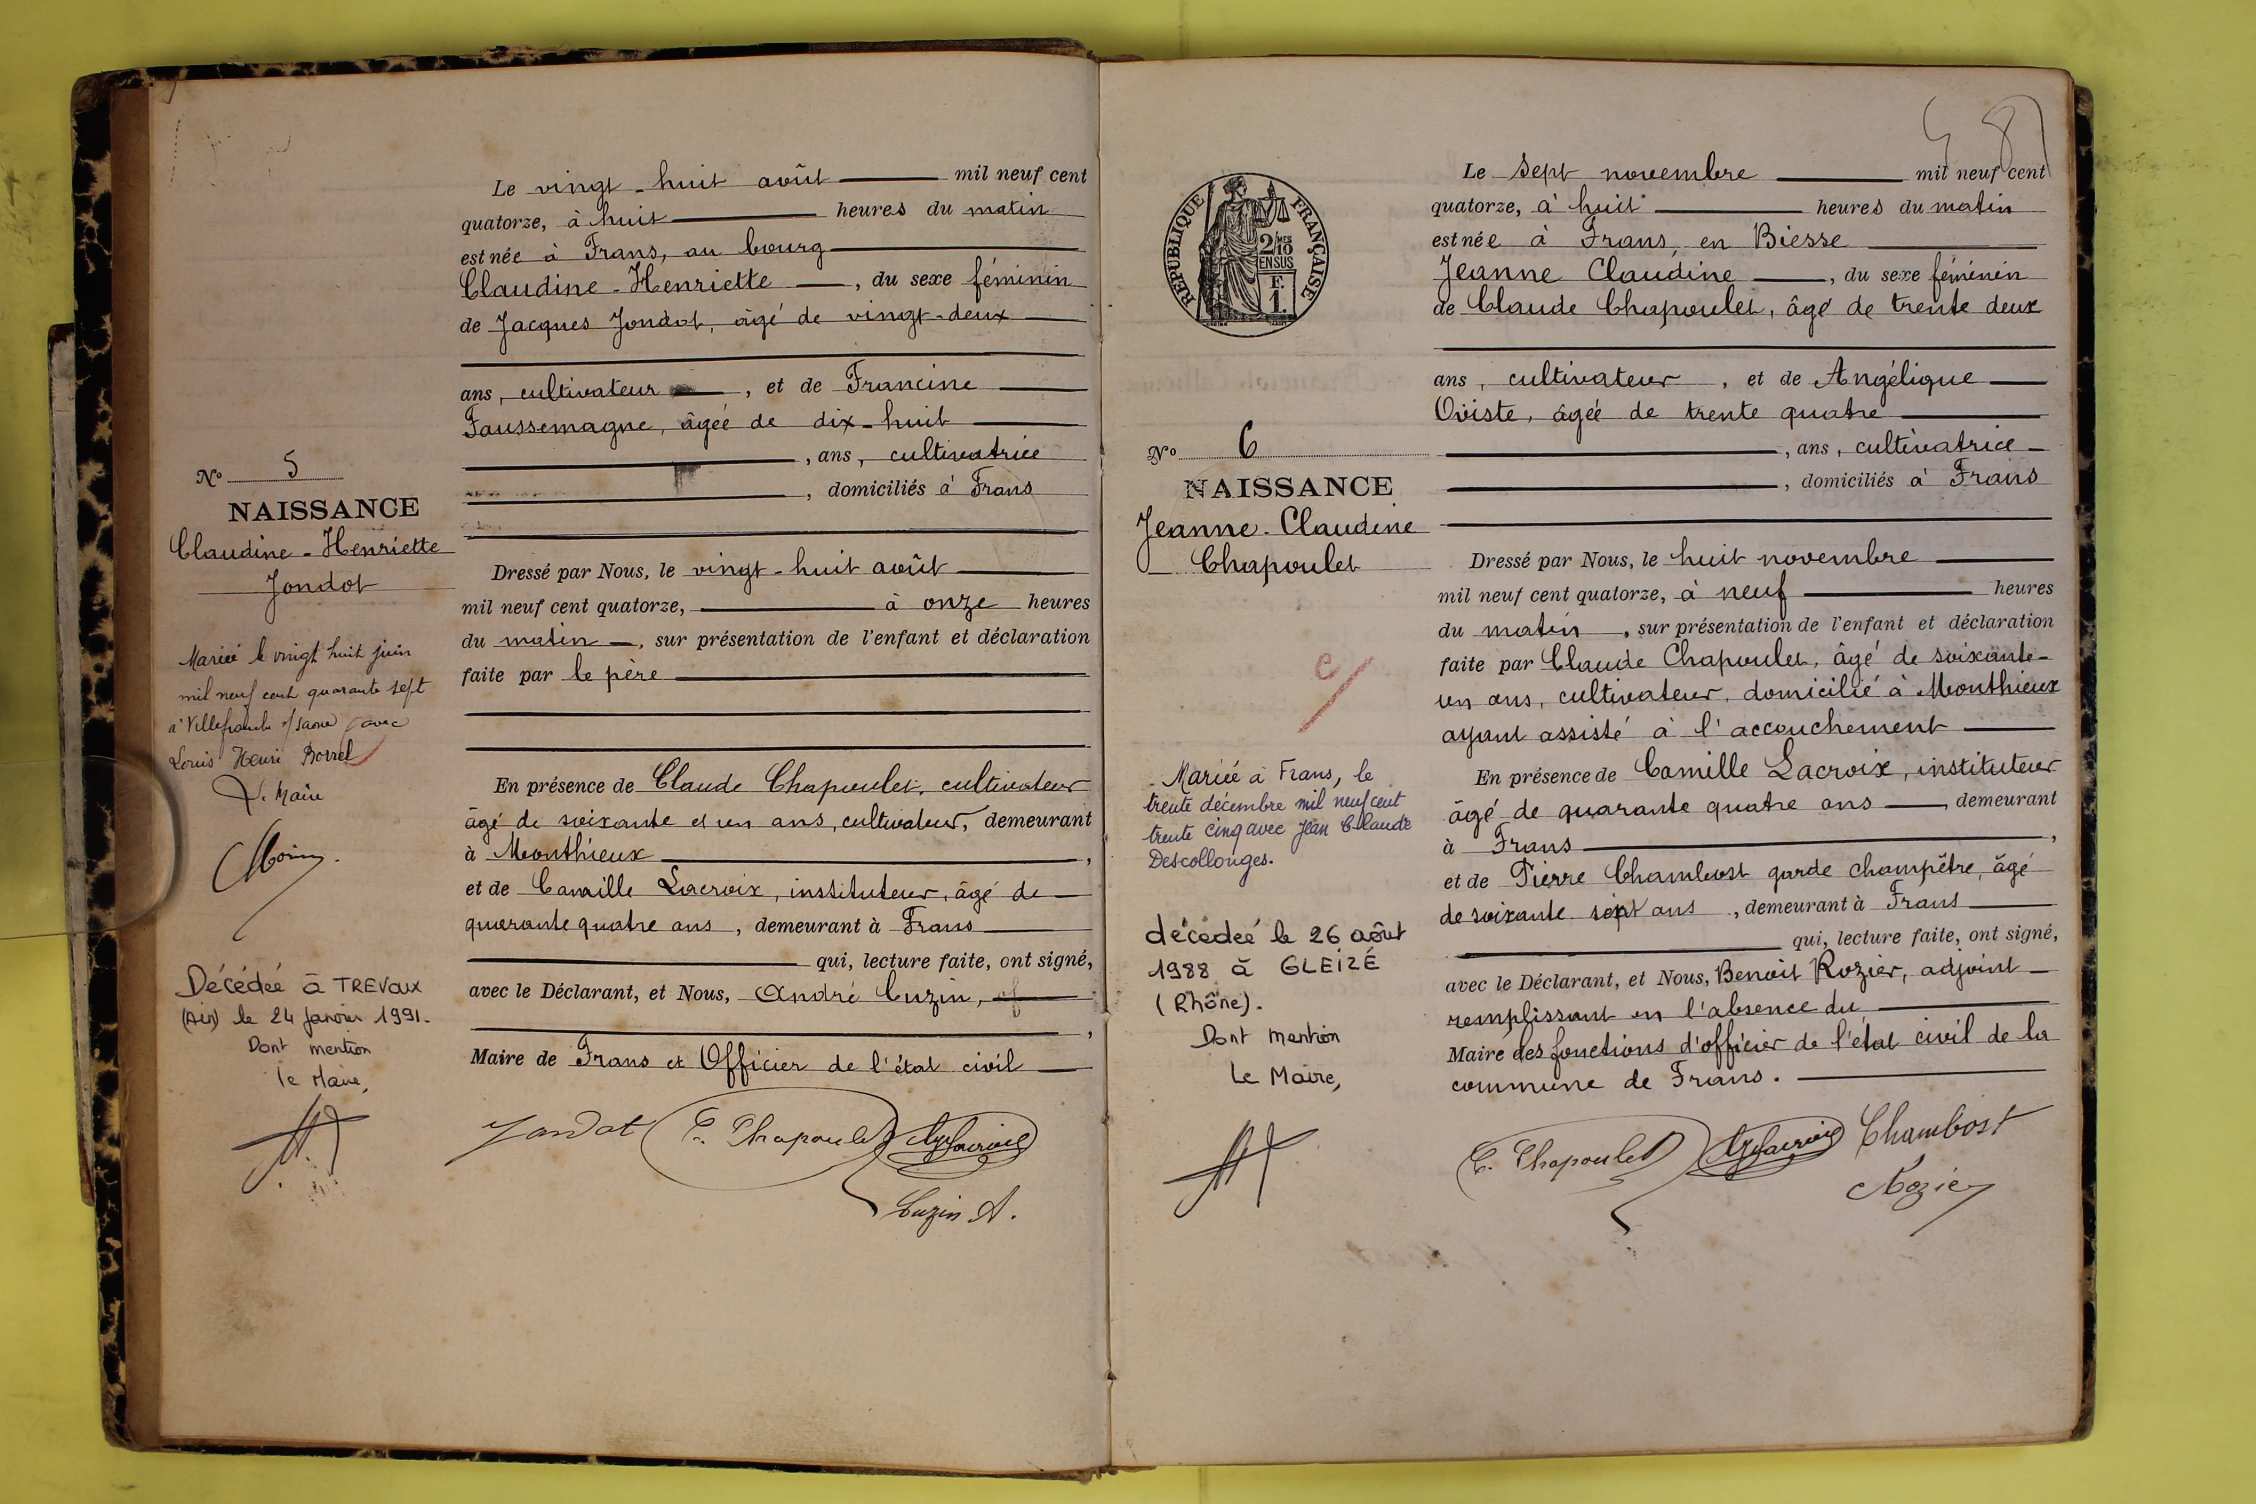 Le vingt-huit août mil neuf cent
quatorze, à huit heures du matin
est née à Frans, au bourg
Claudine-Henriette, du sexe féminin
de Jacques Jondot, âgé de vingt-deux
ans, cultivateur, et de Francine
Faussemagne, âgée de dix-huit
, ans, cultivatrice
, domiciliés à Frans
No 5
NAISSANCE
Claudine-Henriette
Jondot
Dressé par Nous, le vingt-huit août
mil neuf cent quatorze, à onze heures
du matin, sur présentation de l'enfant et déclaration
faite par le père
Mariée le vingt huit juin
mil neuf cent quarante sept
à Villefranche s/Saone avec
Louis Henri Borrel
Le Maire
En présence de Claude Chapoulet, cultivateur
âgé de soixante et un ans, cultivateur, demeurant
à Monthieux,
et de Camille Lacroix, instituteur, âgé de
quarante quatre ans, demeurant à Frans
qui, lecture faite, ont signé,
avec le Déclarant, et Nous, André Cuzin,
,
Maire de Frans et Officier de l'état civil
Décédée à TREVOUX
(Ain) le 24 janvier 1991.
Dont mention
le Maire,
Jondot C. Chapoulet Lacroix
Cuzin A.
RÉPUBLIQUE FRANÇAISE
2/10MES
EN SUS
F.
1.
Le sept novembre mil neuf cent
quatorze, à huit heures du matin
est née à Frans, en Biesse
Jeanne Claudine, du sexe féminin
de Claude Chapoulet, âgé de trente deux
ans, cultivateur, et de Angélique
Oviste, âgée de trente quatre
, ans, cultivatrice
, domiciliés à Frans
No 6
NAISSANCE
Jeanne-Claudine
Chapoulet
Dressé par Nous, le huit novembre
mil neuf cent quatorze, à neuf heures
du matin, sur présentation de l'enfant et déclaration
faite par Claude Chapoulet, âgé de soixante-
un ans, cultivateur, domicilié à Monthieux
ayant assisté à l'accouchement
En présence de Camille Lacroix, instituteur
âgé de quarante quatre ans demeurant
à Frans,
et de Pierre Chambost garde champêtre, âgé
de soixante sept ans, demeurant à Frans
qui, lecture faite, ont signé,
avec le Déclarant, et Nous, Benoit Rozier, adjoint
remplissant en l'absence du
Maire des fonctions d'officier de l'état civil de la
commune de Frans.
Mariée à Frans, le
trente décembre mil neuf cent
trente cinq avec Jean Claude
Descollonges.
décédée le 26 août
1988 à GLEIZÉ
(Rhône).
Dont mention
Le Maire,
C. Chapoulet Lacroix Chambost
Rozier